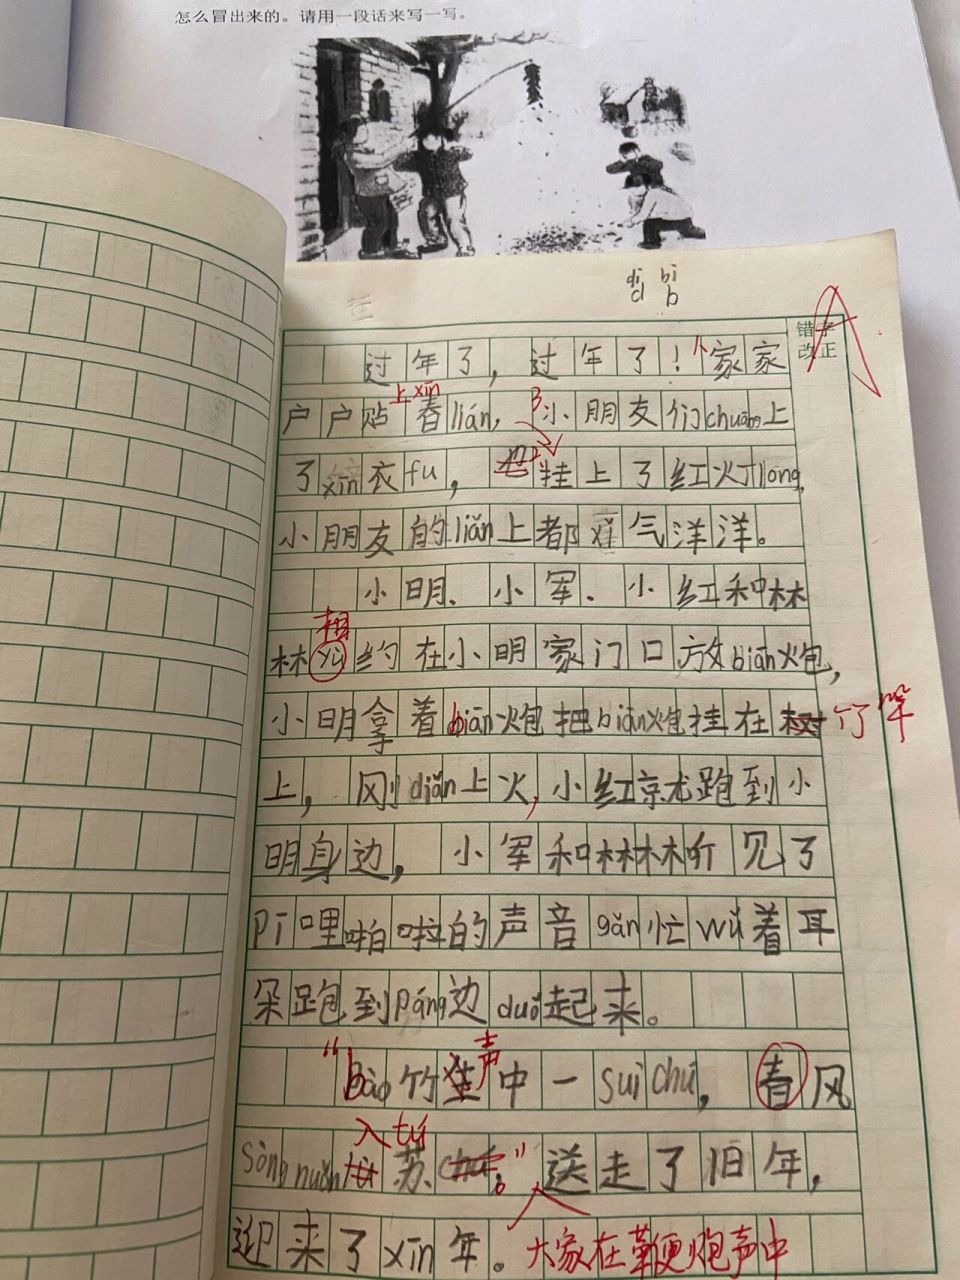 怎么冒出来的。请用一段话来写一写。
di bi
d b
错字
改正
A
过年了，过年了！家家
上 xīn
户户贴春lián，小朋友们chuāng上
了xīn衣fu，也挂上了红火灯long，
小朋友的liǎn上都喜气洋洋。
小明、小军、小红和林
相
林xū约在小明家门口放biān炮，
小明拿着biān炮把biān炮挂在树竹竿
上，刚diǎn上火，小红就跑到小
明身边，小军和林林听见了
pī哩啪啦的声音gǎn忙wǔ着耳
朵跑到páng边duǒ起来。
声
“bào竹生中一suì chú，春风
入 tú
sòng nuǎn 苏”送走了旧年，
迎来了xīn年。大家在鞭炮声中